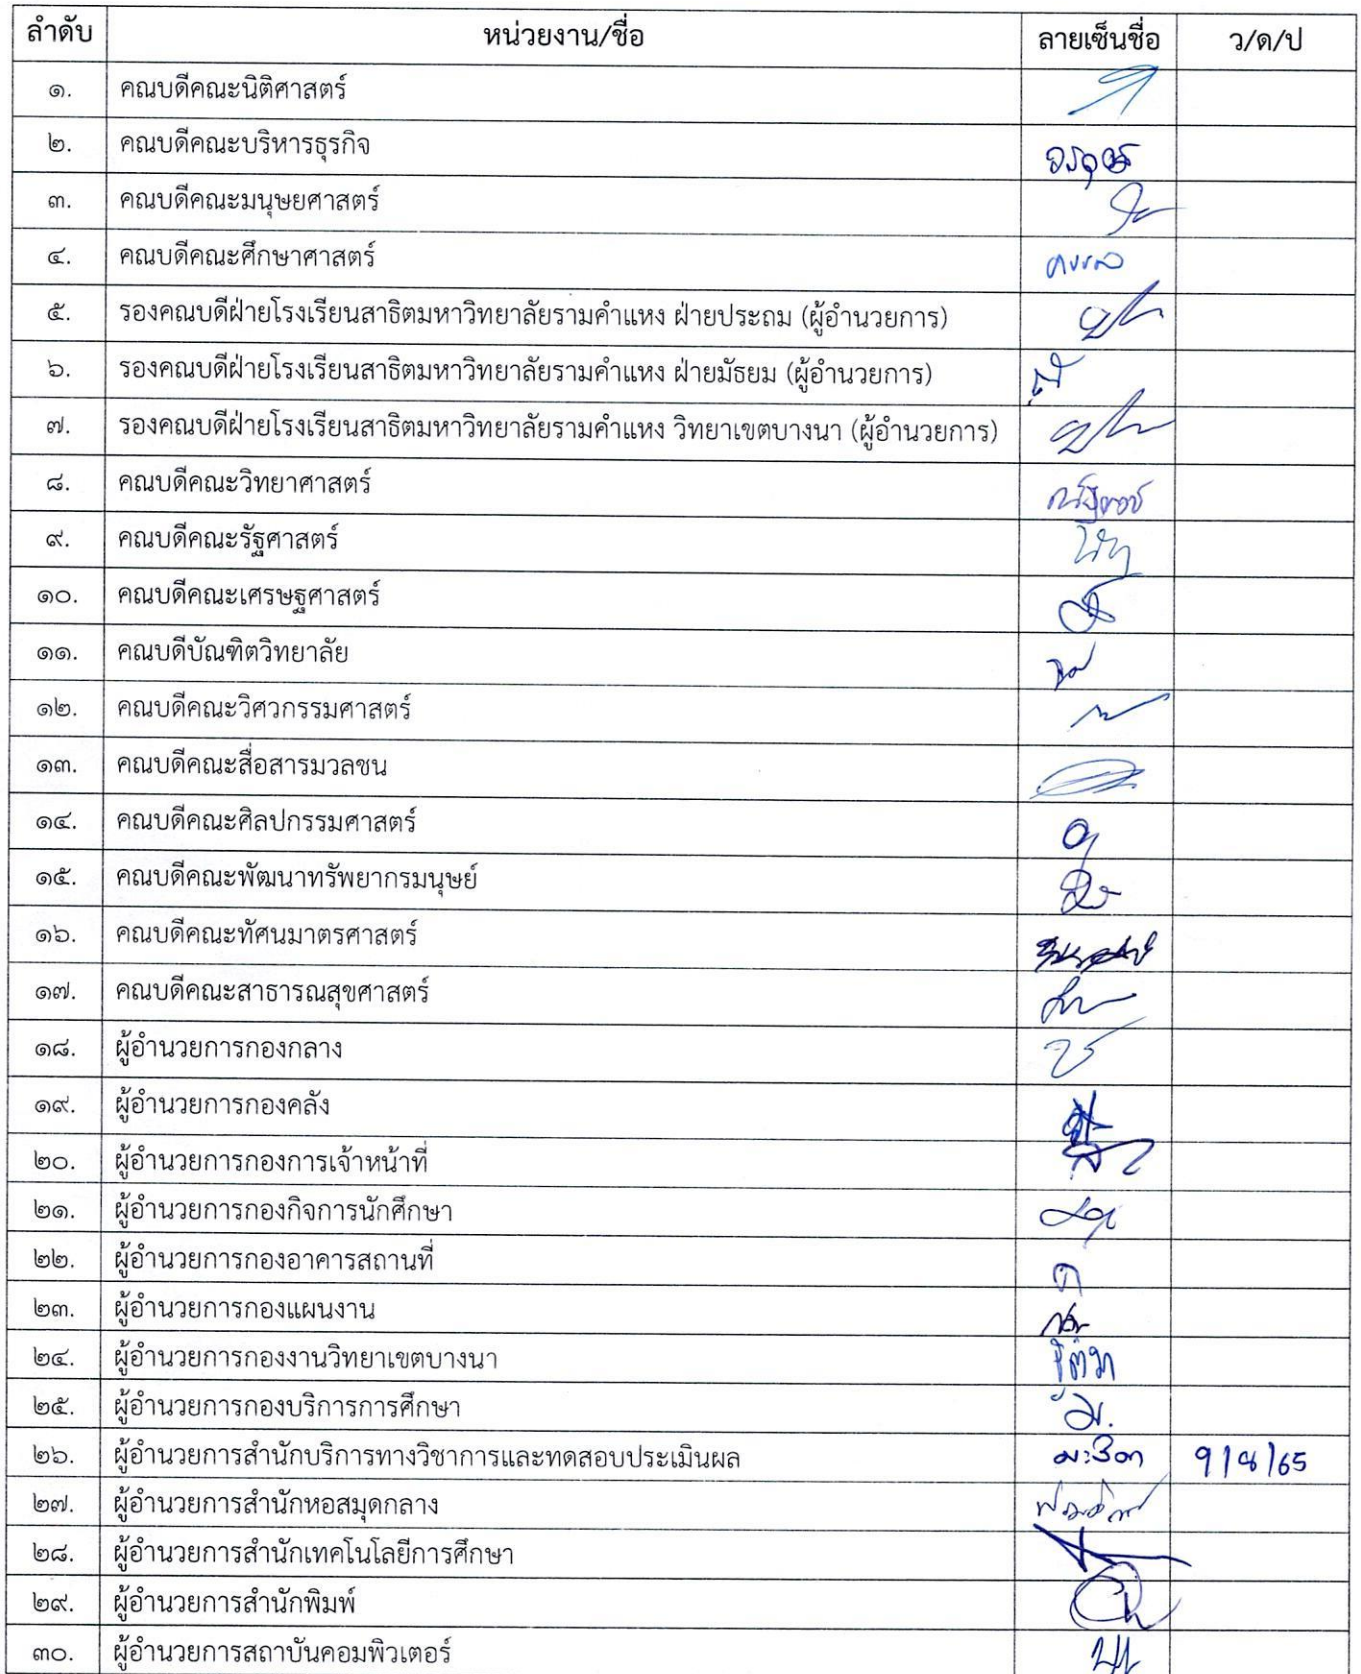 ลำดับ หน่วยงาน/ชื่อ ลายเซ็นชื่อ ว/ด/ป
๑. คณบดีคณะนิติศาสตร์
๒. คณบดีคณะบริหารธุรกิจ
๓. คณบดีคณะมนุษยศาสตร์
๔. คณบดีคณะศึกษาศาสตร์
๕. รองคณบดีฝ่ายโรงเรียนสาธิตมหาวิทยาลัยรามคำแหง ฝ่ายประถม (ผู้อำนวยการ)
๖. รองคณบดีฝ่ายโรงเรียนสาธิตมหาวิทยาลัยรามคำแหง ฝ่ายมัธยม (ผู้อำนวยการ)
๗. รองคณบดีฝ่ายโรงเรียนสาธิตมหาวิทยาลัยรามคำแหง วิทยาเขตบางนา (ผู้อำนวยการ)
๘. คณบดีคณะวิทยาศาสตร์
๙. คณบดีคณะรัฐศาสตร์
๑๐. คณบดีคณะเศรษฐศาสตร์
๑๑. คณบดีบัณฑิตวิทยาลัย
๑๒. คณบดีคณะวิศวกรรมศาสตร์
๑๓. คณบดีคณะสื่อสารมวลชน
๑๔. คณบดีคณะศิลปกรรมศาสตร์
๑๕. คณบดีคณะพัฒนาทรัพยากรมนุษย์
๑๖. คณบดีคณะทัศนมาตรศาสตร์
๑๗. คณบดีคณะสาธารณสุขศาสตร์
๑๘. ผู้อำนวยการกองกลาง
๑๙. ผู้อำนวยการกองคลัง
๒๐. ผู้อำนวยการกองการเจ้าหน้าที่
๒๑. ผู้อำนวยการกองกิจการนักศึกษา
๒๒. ผู้อำนวยการกองอาคารสถานที่
๒๓. ผู้อำนวยการกองแผนงาน
๒๔. ผู้อำนวยการกองงานวิทยาเขตบางนา
๒๕. ผู้อำนวยการกองบริการการศึกษา
๒๖. ผู้อำนวยการสำนักบริการทางวิชาการและทดสอบประเมินผล
๒๗. ผู้อำนวยการสำนักหอสมุดกลาง
๒๘. ผู้อำนวยการสำนักเทคโนโลยีการศึกษา
๒๙. ผู้อำนวยการสำนักพิมพ์
๓๐. ผู้อำนวยการสถาบันคอมพิวเตอร์